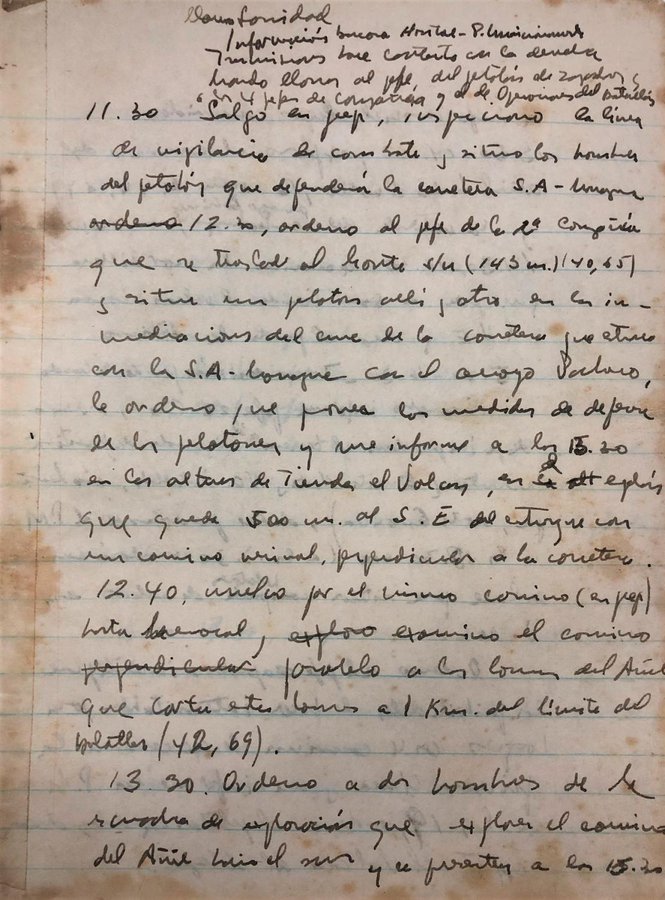 Información busca Hostac -
Instrucciones hace contacto con la
mando llamar al jefe del pelotón de zapadores y
4 jefes de compañía y el de Operaciones del Batallón
11.30 Salgo en jeep, inspecciono la línea
de vigilancia de combate y situo los hombres
del pelotón que defenderá la carretera S.A-
ordeno 12.30, ordeno al jefe de la 2ª compañía
que se traslade al Monte s/n (143 m.) (40,65)
y situe un pelotón allí y otro en las in-
mediaciones del cruce de la carretera que
con la S.A- con el arroyo
le ordeno que ponga las medidas de defensa
de los pelotones y me informe a las 15.30
en las alturas de Tienda el Volcan, en
que queda 500 m. al S.E del entronque con
un camino vecinal, perpendicular a la carretera.
12.40, vuelvo por el mismo camino (en jeep)
hasta y exploro examino el camino
perpendicular paralelo a las lomas del Añil
que corta estas lomas a 1 Km. del límite del
(42, 69).
13.30. Ordeno a dos hombres de la
escuadra de exploración que exploren el camino
del Añil hacia el sur y se presenten a las 15.30